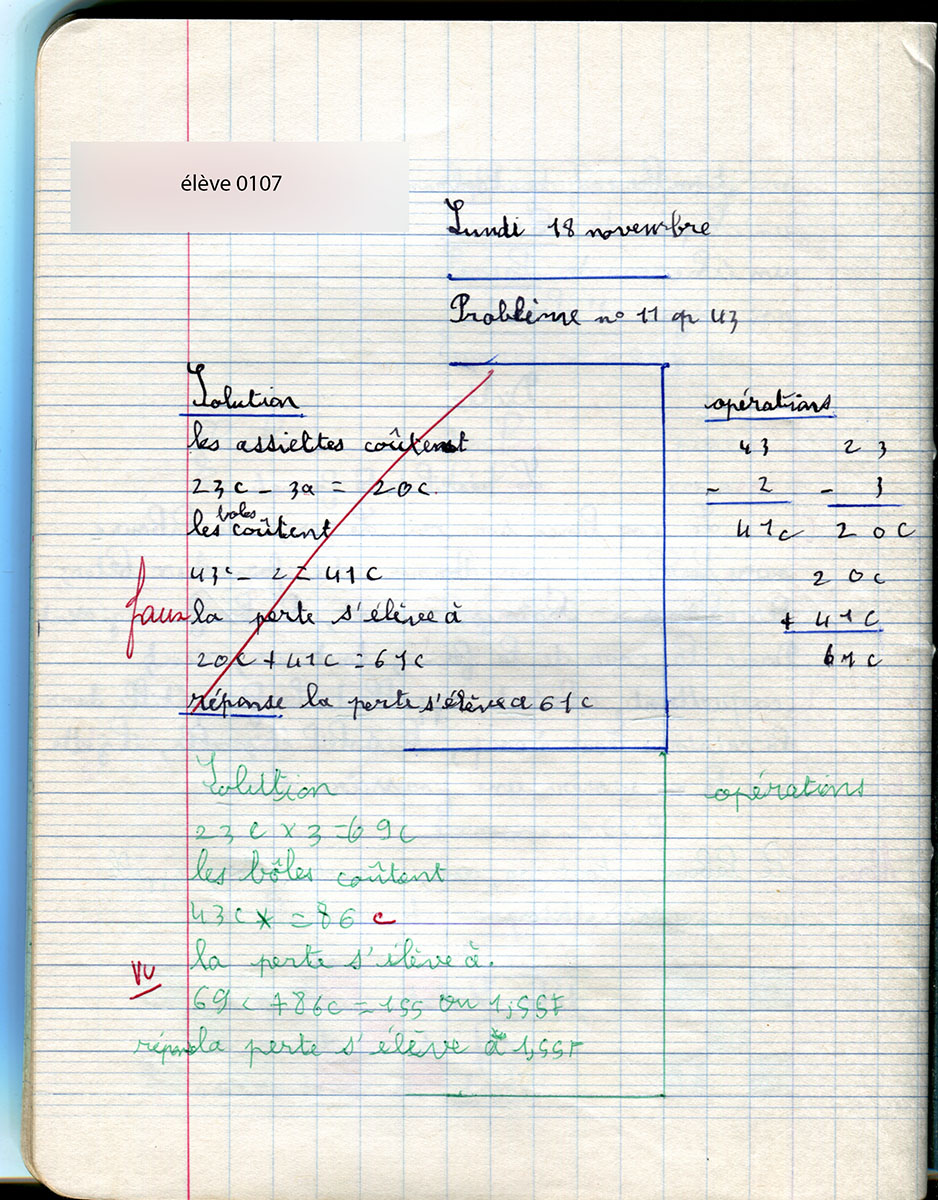 élève 0107
Lundi 18 novembre
Problème n° 11 p 43
Solution
les assiettes coûtent
23c - 3a = 20c.
les boles coûtent
43c - 2 = 41c
faux
la perte s'élève à
20c + 41c = 61c
réponse la perte s'élève a 61c
opérations
43 23
- 2 - 3
41c 20c
20c
+ 41c
61c
Solution
opérations
23c x 3 = 69c
les bôles coûtent
43c x = 86 c
la perte s'élève à.
vu
69c + 86c = 155 ou 1,55F
répons la perte s'élève à 1,55F